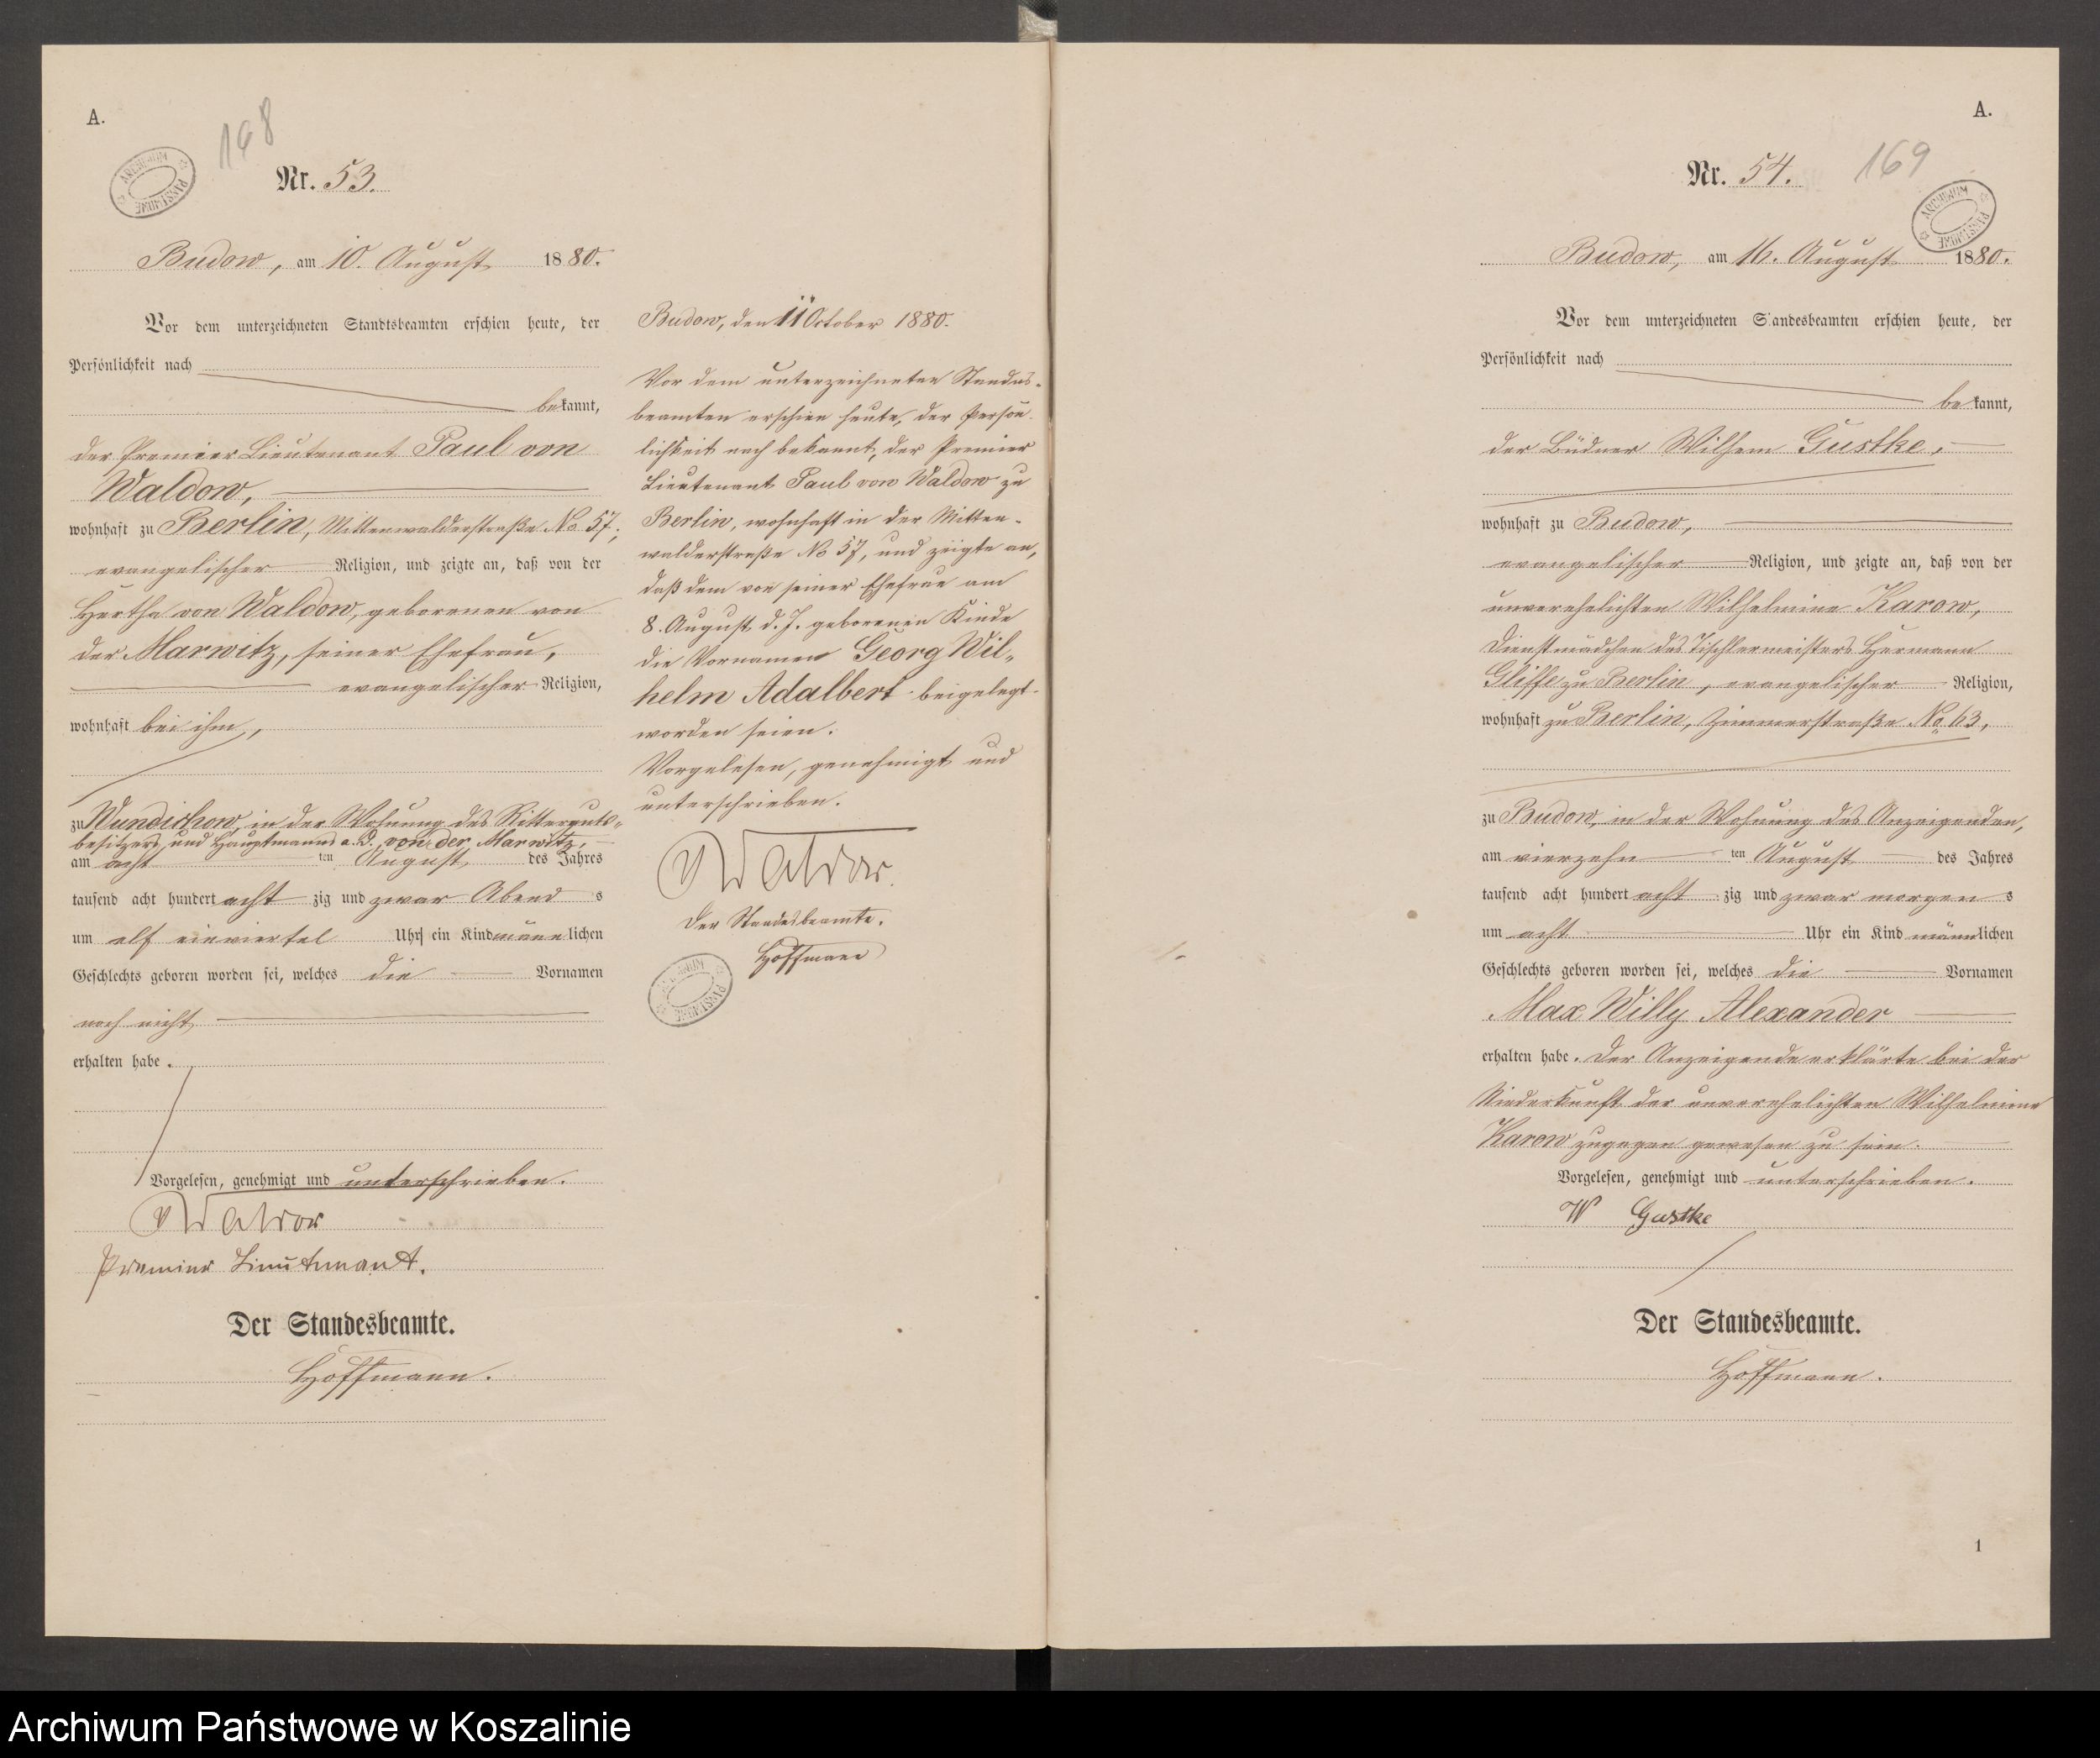 A.
168
ARCHIWUM PAŃSTWOWE
Nr. 53.
Budow, am 10. August 1880.
Vor dem unterzeichneten Standtsbeamten erschien heute, der
Persönlichkeit nach
bekannt,
der Premier Lieutenant Paul von
Waldow,
wohnhaft zu Berlin, Mittenwalderstraße No 57,
evangelischer Religion, und zeigte an, daß von der
Hertha von Waldow, geborenen von
der Marwitz, seiner Ehefrau,
evangelischer Religion,
wohnhaft bei ihm,
zu Wundichow, in der Wohnung des Ritterguts-
besitzers und Hauptmanns a. D. von der Marwitz,
am acht ten August des Jahres
tausend acht hundert acht zig und zwar Abend s
um elf einviertel Uhr ein Kind männlichen
Geschlechts geboren worden sei, welches die Vornamen
noch nicht
erhalten habe.
Vorgelesen, genehmigt und unterschrieben.
vWaldow
Premier Lieutenant.
Der Standesbeamte.
Hoffmann.
Budow, den 11 October 1880.
Vor dem unterzeichneten Standes-
beamten erschien heute, der Persön-
lichkeit nach bekannt, der Premier
Lieutenant Paul von Waldow zu
Berlin, wohnhaft in der Mitten-
walderstraße No 57, und zeigte an,
daß dem von seiner Ehefrau am
8. August d. J. geborenen Kinde
die Vornamen Georg Wil-
helm Adalbert beigelegt
worden seien.
Vorgelesen, genehmigt und
unterschrieben.
vWaldow.
Der Standesbeamte.
Hoffmann
ARCHIWUM PAŃSTWOWE
A.
Nr. 54.
169
ARCHIWUM PAŃSTWOWE
Budow, am 16. August 1880.
Vor dem unterzeichneten Standesbeamten erschien heute, der
Persönlichkeit nach
bekannt,
der Büdner Wilhem Gustke,
wohnhaft zu Budow,
evangelischer Religion, und zeigte an, daß von der
unverehelichten Wilhelmine Karow,
Dienstmädchen des Tischlermeisters Hermann
Gliffe zu Berlin, evangelischer Religion,
wohnhaft zu Berlin, Zimmerstraße No 63,
zu Budow, in der Wohnung des Anzeigenden,
am vierzehn ten August des Jahres
tausend acht hundert acht zig und zwar morgen s
um acht Uhr ein Kind männlichen
Geschlechts geboren worden sei, welches die Vornamen
Max Willy Alexander
erhalten habe. Der Anzeigende erklärte bei der
Niederkunft der unverehelichten Wilhelmine
Karow zugegen gewesen zu sein.
Vorgelesen, genehmigt und unterschrieben.
W Gustke
Der Standesbeamte.
Hoffmann.
1
Archiwum Państwowe w Koszalinie